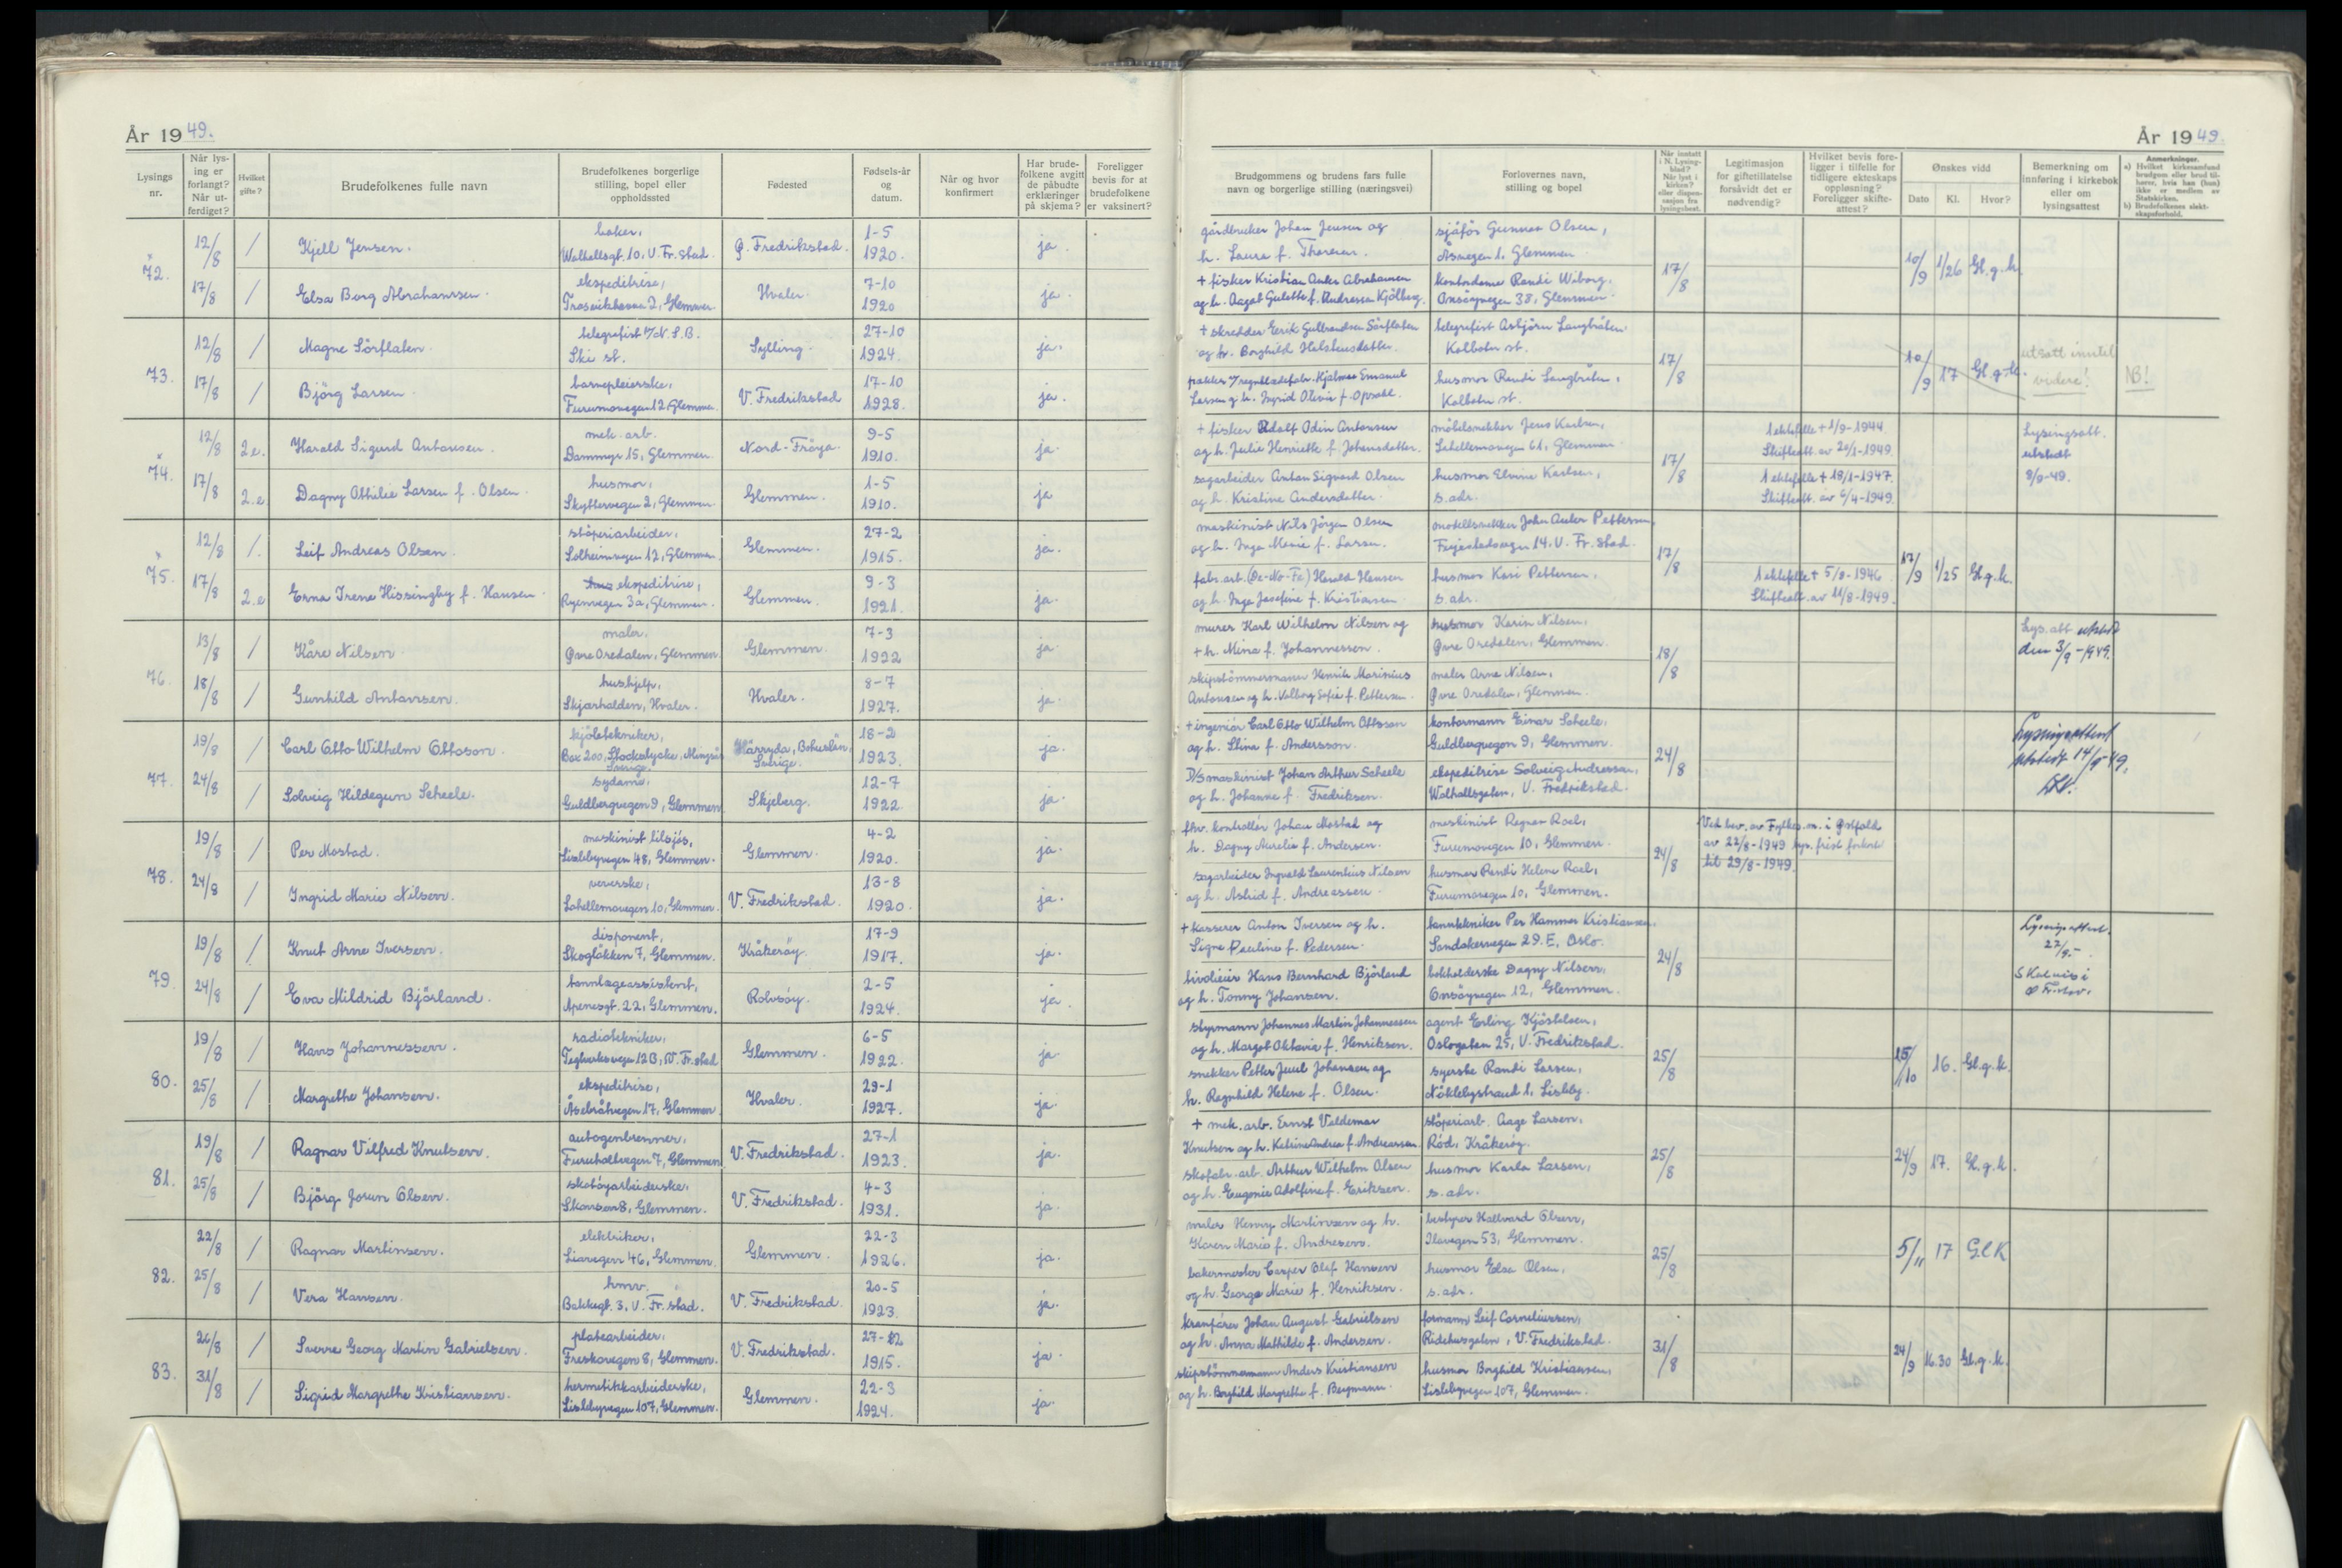 År 1949.
Lysings nr.
Når lysing er forlangt? Når utferdiget?
Hvilket gifte?
Brudefolkenes fulle navn
Brudefolkenes borgerlige stilling, bopel eller oppholdssted
Fødested
Fødsels-år og datum.
Når og hvor konfirmert
Har brudefolkene avgitt de påbudte erklæringer på skjema?
Foreligger bevis for at brudefolkene er vaksinert?
72. 12/8 17/8
/ Kjell Jensen. baker, Walhallsgt. 10, V. Fr.stad. Ø. Fredrikstad. 1-5 1920. ja.
/ Elsa Borg Abrahamsen. ekspeditrise, 2, Glemmen Hvaler. 7-10 1920 ja.
73. 12/8 17/8
/ Magne Sörflaten. telegrafist v/N.S.B. Ski st. Sylling. 27-10 1924. ja.
/ Björg Larsen. barnepleierske, Furumovegen 12, Glemmen V. Fredrikstad 17-10 1928. ja.
74. 12/8 17/8
2.e. Harald Sigurd Antonsen. mek. arb. Dammyr 15, Glemmen. Nord-Fröya. 9-5 1910. ja.
2.e. Dagny Othilie Larsen f. Olsen. husmor, Skyttervegen 2, Glemmen. Glemmen. 1-5 1910. ja
75. 12/8 17/8
/. Leif Andreas Olsen. støperiarbeider, Solheimvegen 12, Glemmen. Glemmen. 27-2 1915. ja.
2.e Erna Irene Hissingby f. Hansen. ekspeditrise, Ryenvegen 3a, Glemmen. Glemmen. 9-3 1921. ja.
76. 13/8 18/8
/ Kåre Nilsen. maler. Øvre Oredalen, Glemmen. Glemmen. 7-3 1922 ja.
/ Gunhild Antonsen. hushjelp, Skjærhalden, Hvaler. Hvaler. 8-7 1927. ja.
77. 19/8 24/8
/ Carl Otto Wilhelm Ottoson. kjöletekniker, Box 200, Sverige. Härryda, Bohuslän, Sverige. 18-2 1923. ja.
/ Solveig Hildegunn Scheele. sydame, Guldbergvegen 9, Glemmen Skjeberg. 12-7 1922 ja.
78. 19/8 24/8
/ Per Mostad. maskinist tilsjös, Lislebyvegen 48, Glemmen. Glemmen. 4-2 1920. ja.
/ Ingrid Marie Nilsen. veverske, Lahellemovegen 10, Glemmen. V. Fredrikstad. 13-8 1920. ja.
79. 19/8 24/8
/ Knut Arne Iversen. disponent, Skogløkken 7, Glemmen. Kråkeröy. 17-9 1917. ja.
/ Eva Mildrid Björland. tannlægeassistent, Apenesgt. 22, Glemmen. Rolvsöy. 2-5 1924. ja.
80. 19/8 25/8
/ Hans Johannessen. radiotekniker, Teglverksvegen 12B, V. Fr.stad Glemmen. 6-5 1922. ja.
/ Margrethe Johansen. ekspeditrise, 17, Glemmen Hvaler. 29-1 1927. ja.
81. 19/8 25/8
/ Ragnar Vilfred Knutsen. autogenbrenner, Furuholtvegen 7, Glemmen V. Fredrikstad. 27-1 1923. ja.
/ Björg Jorun Olsen. skotøyarbeiderske, Skansen 8, Glemmen. V. Fredrikstad. 4-3 1931. ja.
82. 22/8 25/8
/ Ragnar Martinsen. elektriker, Liavegen 46, Glemmen. Glemmen. 22-3 1926. ja.
/ Vera Hansen. hmv. Bakkegt. 3, V. Fr.stad. V. Fredrikstad. 20-5 1923. ja.
83. 26/8 31/8
/ Sverre Georg Martin Gabrielsen. platearbeider, Freskovegen 8, Glemmen. V. Fredrikstad. 27-12 1915. ja.
/ Sigrid Margrethe Kristiansen. hermetikkarbeiderske, Lislebyvegen 107, Glemmen. Glemmen. 22-3 1924. ja.
År 1949.
Brudgommens og brudens fars fulle navn og borgerlige stilling (næringsvei)
Forlovernes navn, stilling og bopel
Når inntatt i N. Lysingblad? Når lyst i kirken? eller dispensasjon fra lysingbest.
Legitimasjon for giftetillatelse forsåvidt det er nødvendig?
Hvilket bevis foreligger i tilfelle for tidligere ekteskaps oppløsning? Foreligger skifteattest?
Ønskes vidd
Dato Kl. Hvor?
Bemerkning om innføring i kirkebok eller om lysingsattest
Anmerkninger.
a) Hvilket kirkesamfund brudgom eller brud tilhører, hvis han (hun) ikke er medlem av Statskirken.
b) Brudefolkenes slektskapsforhold.
gårdbruker Johan Jensen og h. Laura f. Thoresen. sjåfør Gunnar Olsen, Åsvegen 1, Glemmen. 17/8 10/9 1/26 Gl.g.k.
+ fisker Kristian Anker Abrahamsen og h. Aagot Gulette f. Andresen Kjölberg. kontordame Randi Wiborg, Onsöyvegen 38, Glemmen.
+ skredder Eerik Gulbrandsen Sörflaten og h. Borghild Halstensdatter. telegrafist Asbjörn Langbråten Kolbotn st. 17/8 10/9 17 Gl.g.k. utsatt inntil videre! NB!
pakker v/ Hjalmar Emanuel Larsen og h. Ingrid Olivia f. Opsahl. husmor Randi Langbråten, Kolbotn st.
+ fisker Adolf Odin Antonsen og h. Julie Henriette f. Johansdatter. möbelsnekker Jens Karlsen, Lahellemovegen 61, Glemmen. 17/8 1 ektefelle + 1/9-1944. Skifteatt. av 20/1-1949. Lysingsatt. utstedt 8/9-49.
sagarbeider Anton Sigvard Olsen og h. Kristine Andersdatter. husmor Elvine Karlsen, s.adr. 1 ektefelle + 18/1-1947. Skifteatt. av 6/4-1949.
maskinist Nils Jörgen Olsen og h. Inga Marie f. Larsen. modellsnekker John Anker Pettersen, 14, V. Fr.stad. 17/8 17/9 1/25 Gl.g.k.
fabr.arb. (De-No-Fa) Harald Hansen og h. Inga Josefine f. Kristiansen husmor Kari Pettersen, s.adr. 1 ektefelle + 5/8-1946 Skifteatt. av 11/8-1949.
murer Karl Wilhelm Nilsen og + h. Mina f. Johannessen. husmor Karin Nilsen, Øvre Oredalen, Glemmen. 18/8 Lys.att utstedt den 3/9-1949.
skipstömmermann Henrik Marinius Antonsen og h. Valborg Sofie f. Pettersen. maler Arne Nilsen, Øvre Oredalen, Glemmen.
+ ingeniör Carl Otto Wilhelm Ottoson og h. Stina f. Andersson. kontormann Einar Scheele, Guldbergvegen 9, Glemmen. 24/8 Lysingsattest utstedt 14/9-49.
D/S maskinist Johan Arthur Scheele og h. Johanne f. Fredriksen. ekspeditrise Solveig Andreassen, Walhallsgaten, V. Fredrikstad.
fhv. kontrollör Johan Mostad og h. Dagny Aurelia f. Andersen. maskinist Ragnar Roel, Furumovegen 10, Glemmen. 24/8 Ved bev. av Fylkesm. i Østfold av 22/8-1949 lys. frist forkort til 29/8-1949.
sagarbeider Ingvald Laurentius Nilsen og h. Astrid f. Andreassen. husmor Randi Helene Roel, Furumovegen 10, Glemmen.
+ kasserer Anton Iversen og h. Signe Pauline f. Pedersen. tanntekniker Per Hammer Kristiansen, Sandakervegen 29.E, Oslo. 24/8 Lysingsattest. 22/9.-
Hans Bernhard Björland og h. Tonny Johansen. bokholderske Dagny Nilsen, Onsöyvegen 12, Glemmen.
styrmann Johannes Martin Johannessen og h. Margot Oktavia f. Henriksen. agent Erling Kjöstelsen, Oslogaten 25, V. Fredrikstad. 25/8 15/10 16. Gl.g.k.
snekker Petter Juul Johansen og h. Ragnhild Helene f. Olsen. syerske Randi Larsen, Nöklebystrand 1, Lisleby.
+ mek. arb. Ernst Valdemar Knutsen og h. Katrine Andrea f. Andreassen. støperiarb. Aage Larsen, Röd, Kråkeröy. 25/8 24/9 17. Gl.g.k.
skofabr. arb. Arthur Wilhelm Olsen og h. Eugenie Adolfine f. Eriksen. husmor Karla Larsen, s.adr.
maler Henry Martinsen og h. Karen Marie f. Andresen. bestyrer Hallvard Olsen, Ilavegen 53, Glemmen. 25/8 5/11 17 G.l.K
bakermester Casper Olaf Hansen og h. Georga Marie f. Henriksen. husmor Elsa Olsen, s.adr.
kranfører Johan August Gabrielsen og h. Anna Mathilde f. Andersen. formann Leif Corneliussen, Ridehusgaten, V. Fredrikstad. 31/8 24/9 16.30 Gl.g.k.
skipstömmermann Anders Kristiansen og h. Borghild Margrethe f. Bergmann. husmor Borghild Kristiansen, Lislebyvegen 107, Glemmen.